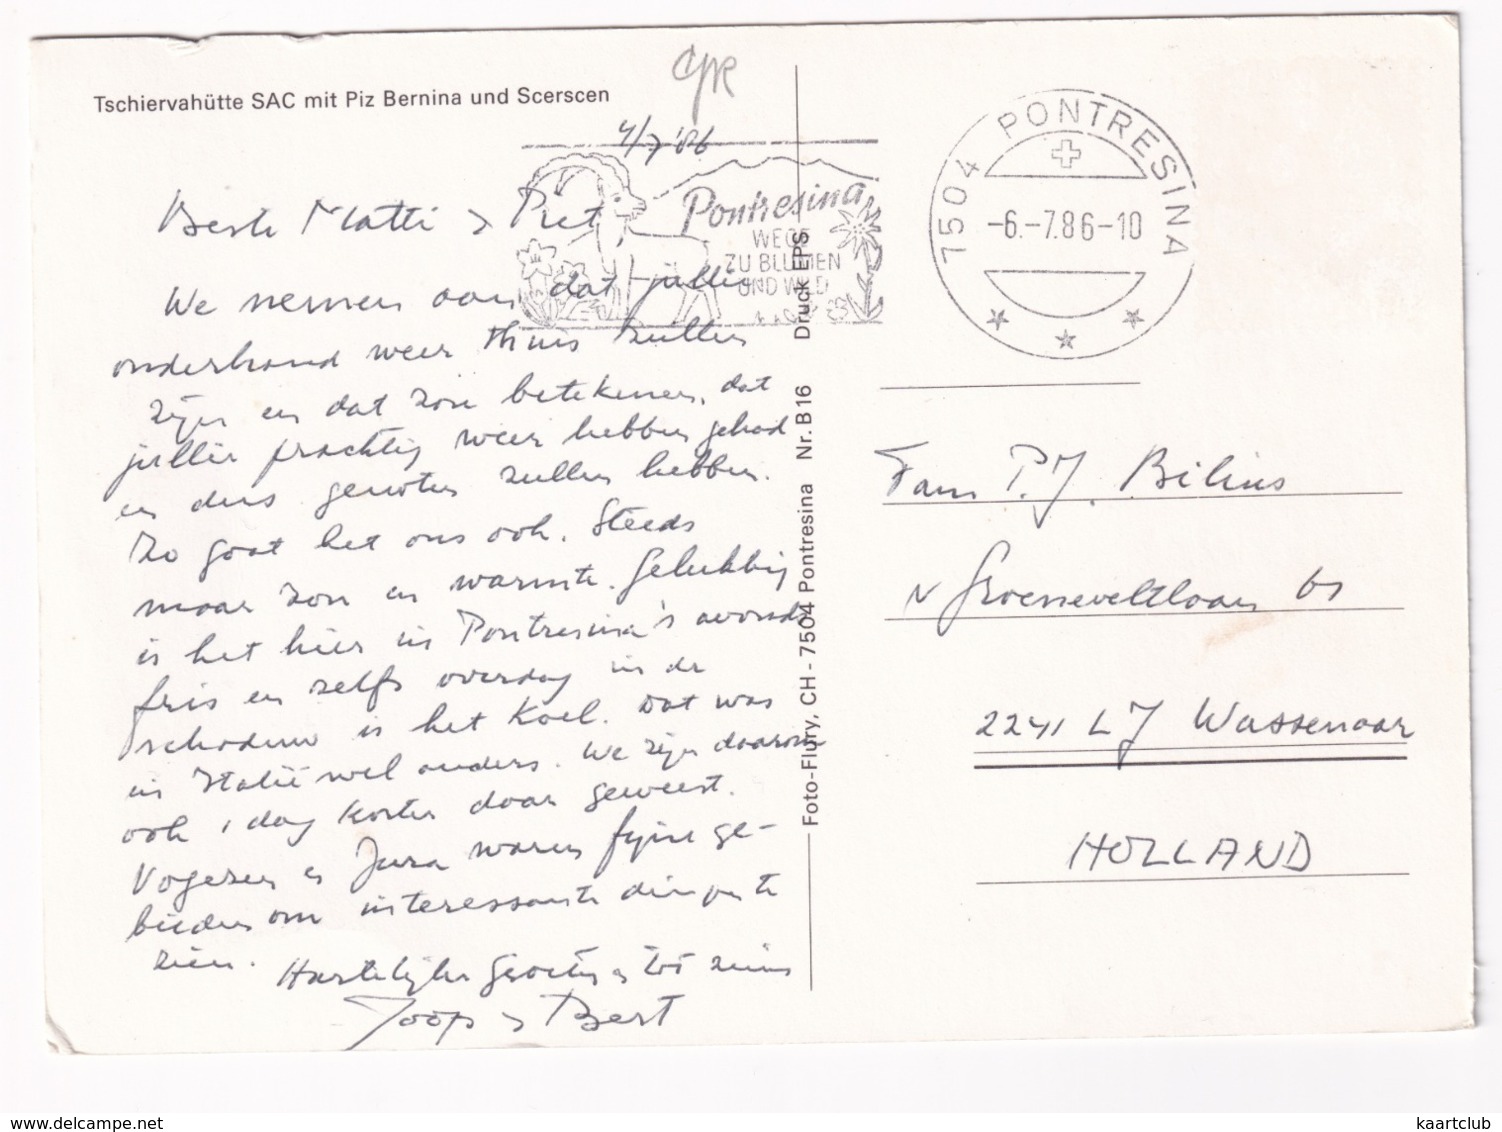 Tschiervahütte SAC mit Piz Bernina und Scerscen
4/7 '86
Pontresina
WEGE
ZU BLUMEN
UND WILD
7504 PONTRESINA
-6.-7.86-10
Beste Matti & Piet,
We nemen aan dat jullie
onderhand weer thuis zullen
zijn en dat zou betekenen, dat
jullie prachtig weer hebben gehad
en dus genoten zullen hebben.
Zo gaat het ons ook. Steeds
maar zon en warmte. Gelukkig
is het hier in Pontresina 's avonds
fris en zelfs overdag in de
schaduw is het koel. Dat was
in Italië wel anders. We zijn daarom
ook 1 dag korter daar geweest.
Vogezen en Jura waren fijne ge-
bieden om interessante dingen te
zien. Hartelijke groeten en tot ziens
Joop & Bert
Foto-Flury, CH - 7504 Pontresina Nr. B16 Druck EPS
Fam P.J. Bilius
v Groeneveltlaan 61
2241 LJ Wassenaar
HOLLAND
www.delcampe.net
kaartclub